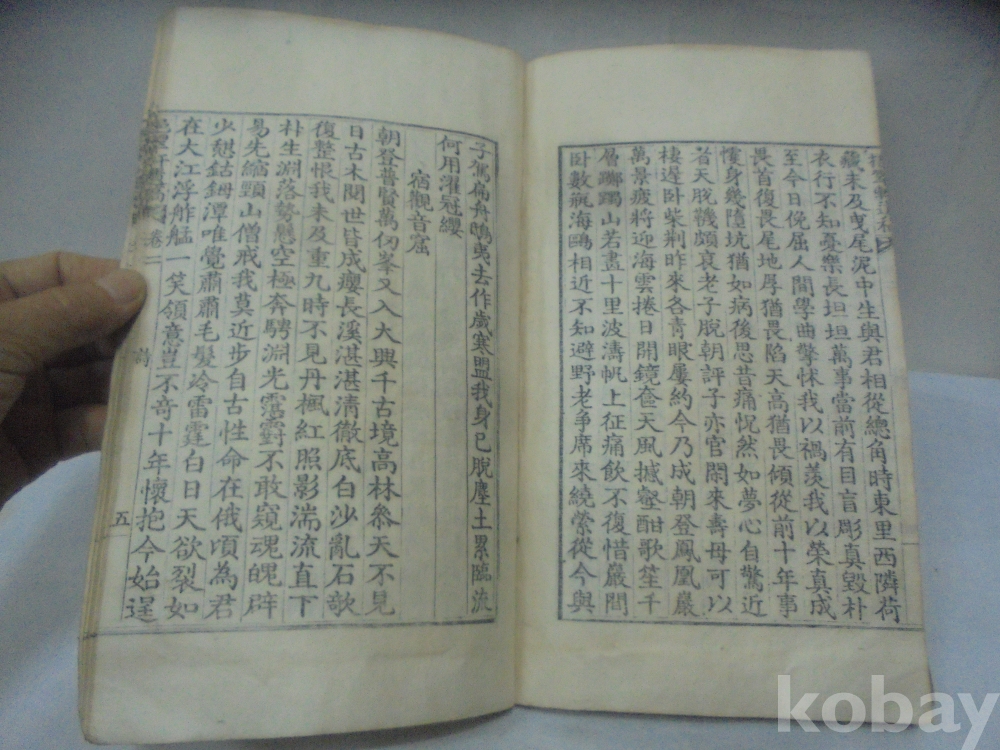 藏未及曳尾泥中生與君相從總角時東里西隣荷
衣行不知憂樂長坦坦萬事當前有目盲彫真毀朴
至今日俛屈人間學曲擎怵我以禍羨我以榮真成
畏首復畏尾地厚猶畏陷天高猶畏傾從前十年事
㥥身幾墮坑猶如病後思昔痛怳然如夢心自驚近
者天脫鞿頗哀老子脫朝評子亦官閑來壽母可以
棲遲卧柴荆昨來各青眼屢約今乃成朝登鳳凰巖
萬景疲將迎海雲捲日開鏡奩天風撼壑酣歌笙千
層躑躅山若畫十里波濤帆上征痛飮不復惜巖間
卧數瓶海鷗相近不知避野老爭席來繞縈從今與
子駕扁舟鴟夷去作歲寒盟我身已脫塵土累臨流
何用濯冠纓
宿觀音窟
朝登普賢萬仞峯又入大興千古境高林叅天不見
日古木閱世皆成癭長溪湛湛清徹底白沙亂石欹
復整恨我未及重九時不見丹楓紅照影湍流直下
朴生淵落勢懸空極奔騁淵光靄䨴不敢窺魂魄辟
易先縮頸山僧戒我莫近步自古性命在俄頃為君
少憇鈷鉧潭唯覺肅肅毛髮冷雷霆白日天欲裂如
在大江浮舴艋一笑領意豈不奇十年懷抱今始逞
卷一
詩
五
kobay